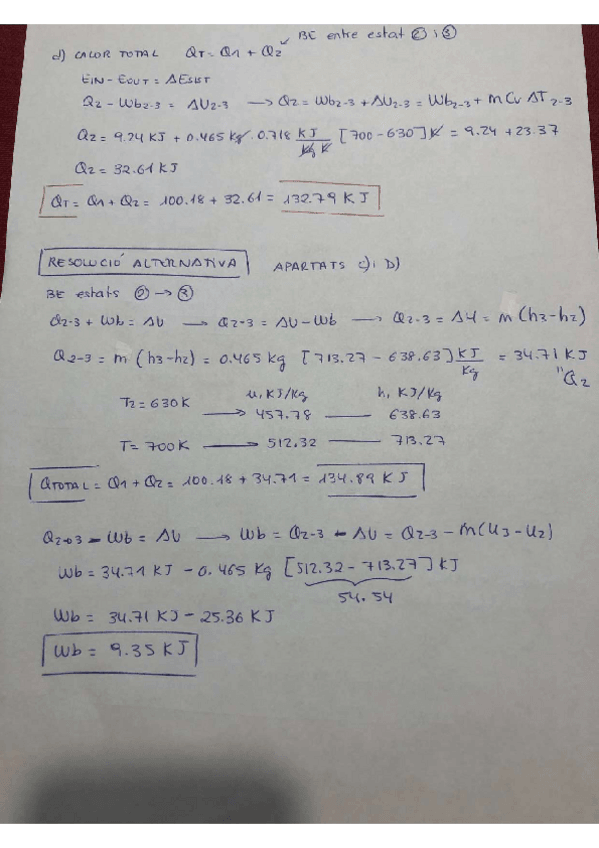 BE entre estat ② i ③
d) CALOR TOTAL QT = Q1 + Q2
EIN - EOUT = ΔESIST
Q2 - Wb2-3 = ΔU2-3 → Q2 = Wb2-3 + ΔU2-3 = Wb2-3 + m Cv ΔT2-3
Q2 = 9.24 KJ + 0.465 Kg · 0.718 KJ/Kg K [700 - 630] K = 9.24 + 23.37
Q2 = 32.61 KJ
QT = Q1 + Q2 = 100.18 + 32.61 = 132.79 KJ
RESOLUCIÓ ALTERNATIVA APARTATS C) i D)
BE estats ② → ③
Q2-3 + Wb = ΔU → Q2-3 = ΔU - Wb → Q2-3 = ΔH = m (h3 - h2)
Q2-3 = m (h3 - h2) = 0.465 Kg [713.27 - 638.63] KJ/Kg = 34.71 KJ
" Q2
u, KJ/Kg h, KJ/Kg
T2 = 630K → 457.78 — 638.63
T = 700K → 512.32 — 713.27
QTOTAL = Q1 + Q2 = 100.18 + 34.71 = 134.89 KJ
Q2→3 - Wb = ΔU → Wb = Q2-3 - ΔU = Q2-3 - m(U3 - U2)
Wb = 34.71 KJ - 0.465 Kg [512.32 - 713.27] KJ
54.54
Wb = 34.71 KJ - 25.36 KJ
Wb = 9.35 KJ